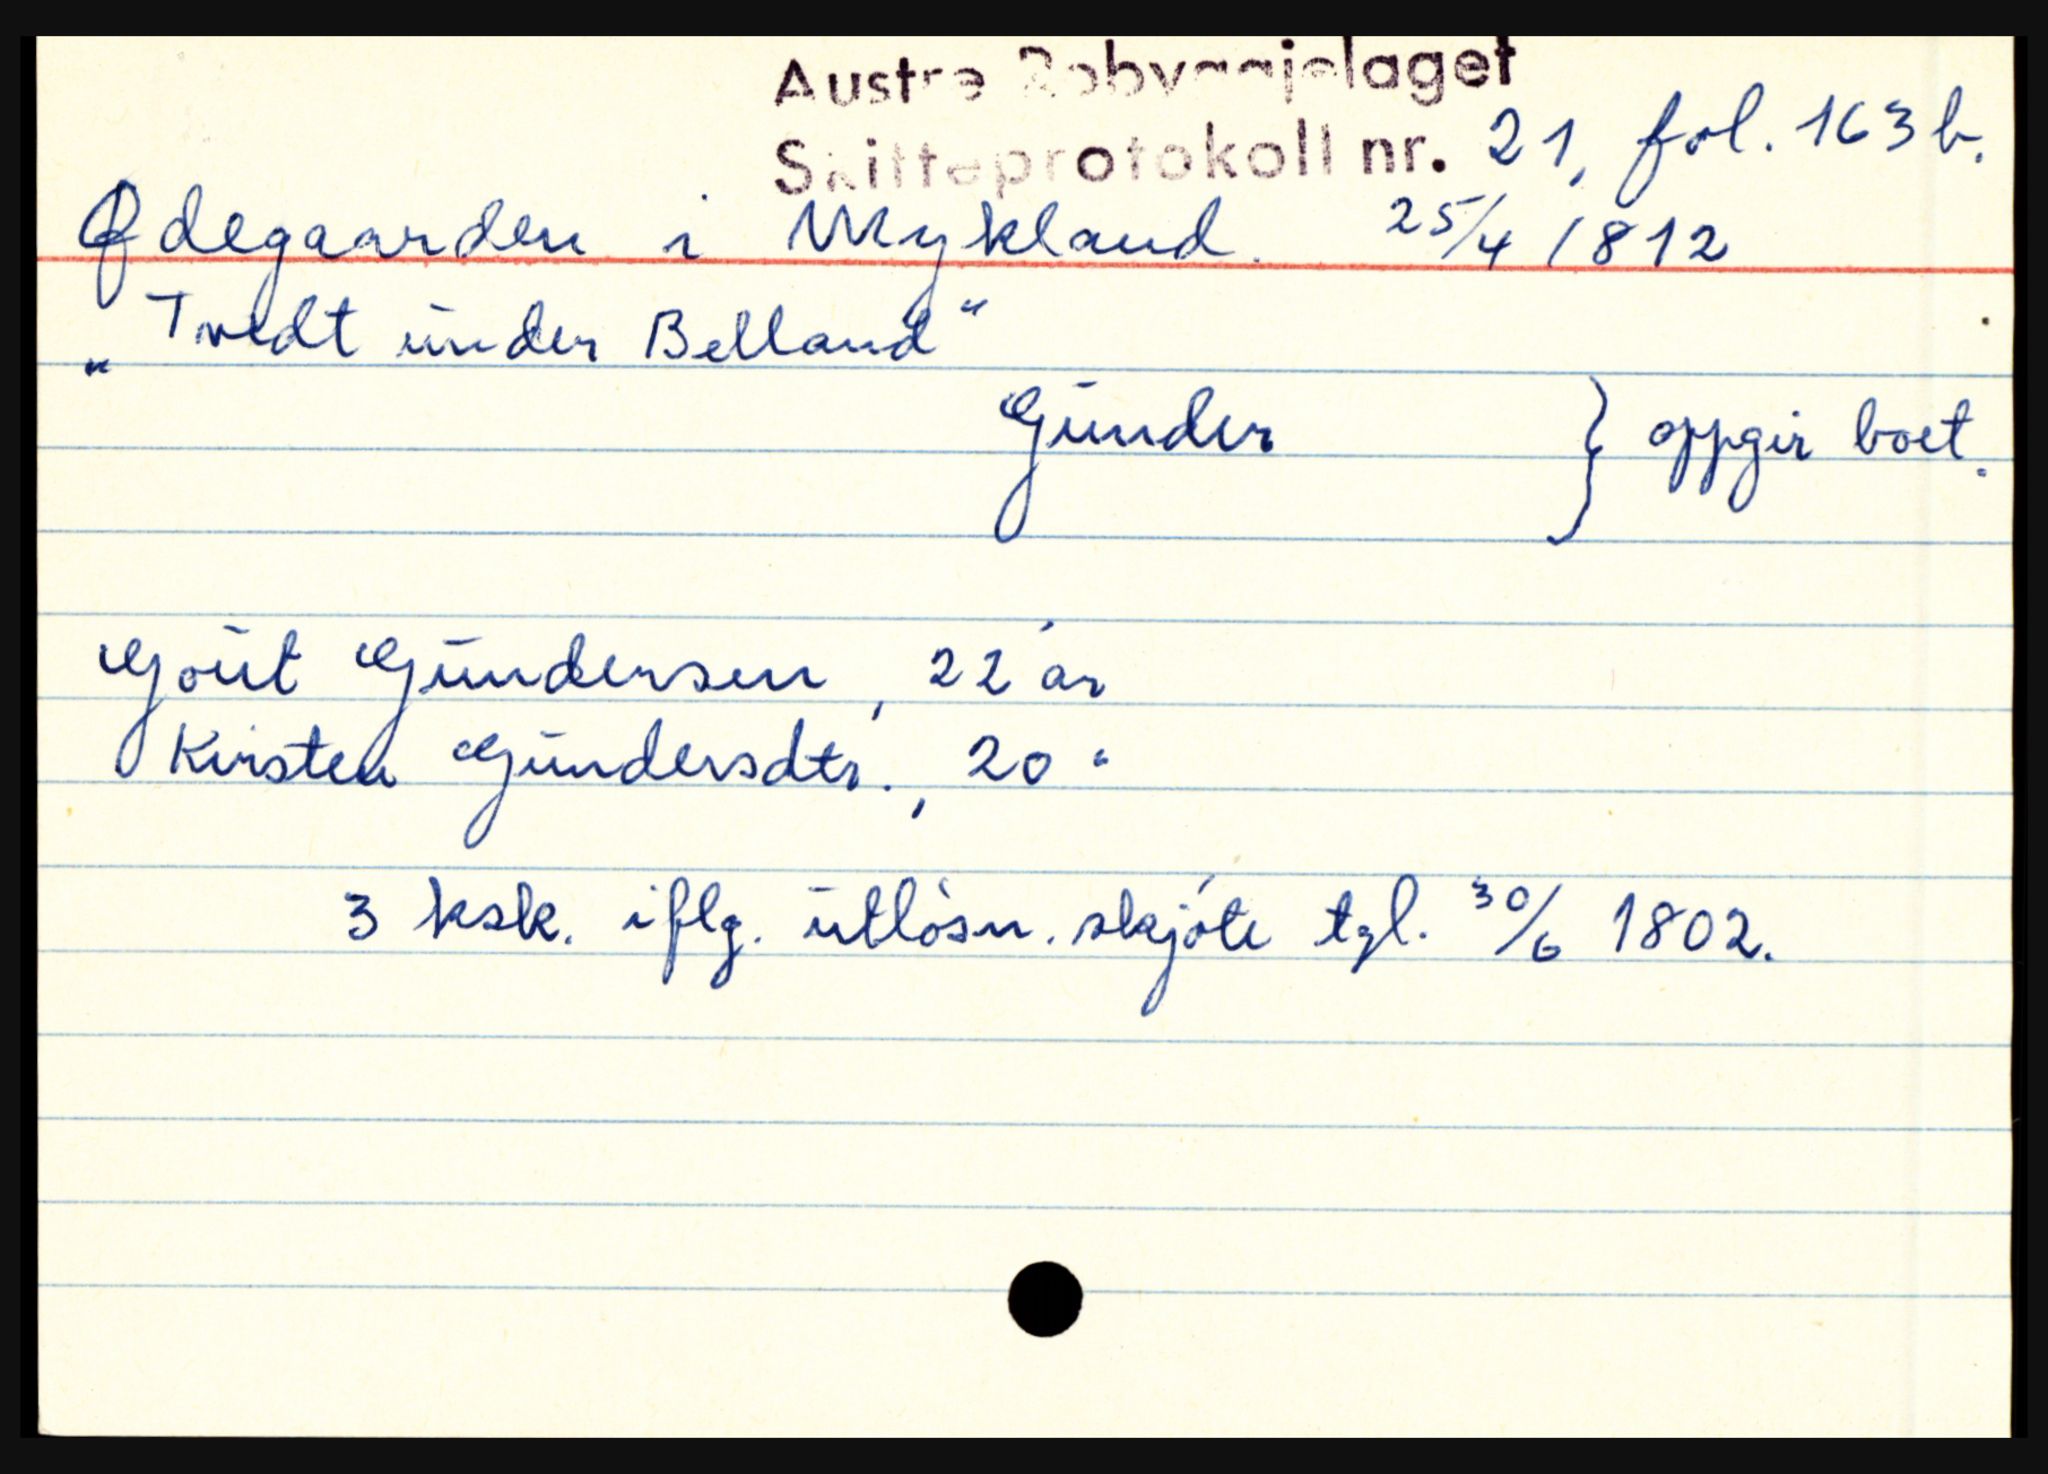 Austre Robyggjelaget
Skifteprotokoll nr. 21, fol. 163 b.
Ødegaarden i Mykland. 25/4 1812
„Tvedt under Belland“
Gunder } oppgir boet.
Gout Gundersen, 22 år
Kirsten Gundersdtr., 20 "
3 ksk. iflg. utløsn. skjøte tgl. 30/6 1802.